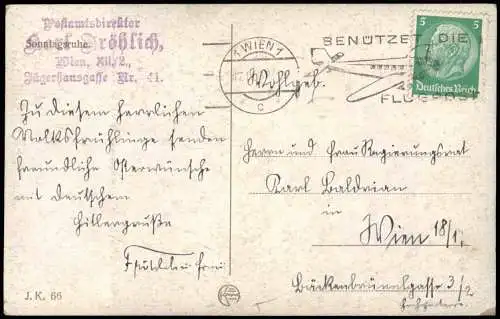 Postamtsdirektor
Fröhlich,
Wien, XII/2,
Jägerhausgasse Nr. 41.
Sonntagsruhe.
1 WIEN 1
C
BENÜTZET DIE
FLUGPOST
5 5
Deutsches Reich
Wohlgeb.
Zu diesem herrlichen
Volksfrühlinge senden
freundliche Osterwünsche
mit deutschem
Hitlergruße
Herrn und Frau Regierungsrat
Karl Baldrian
in
Wien 18/1,
Bäckenbrünnlgasse 3/2
J. K. 66